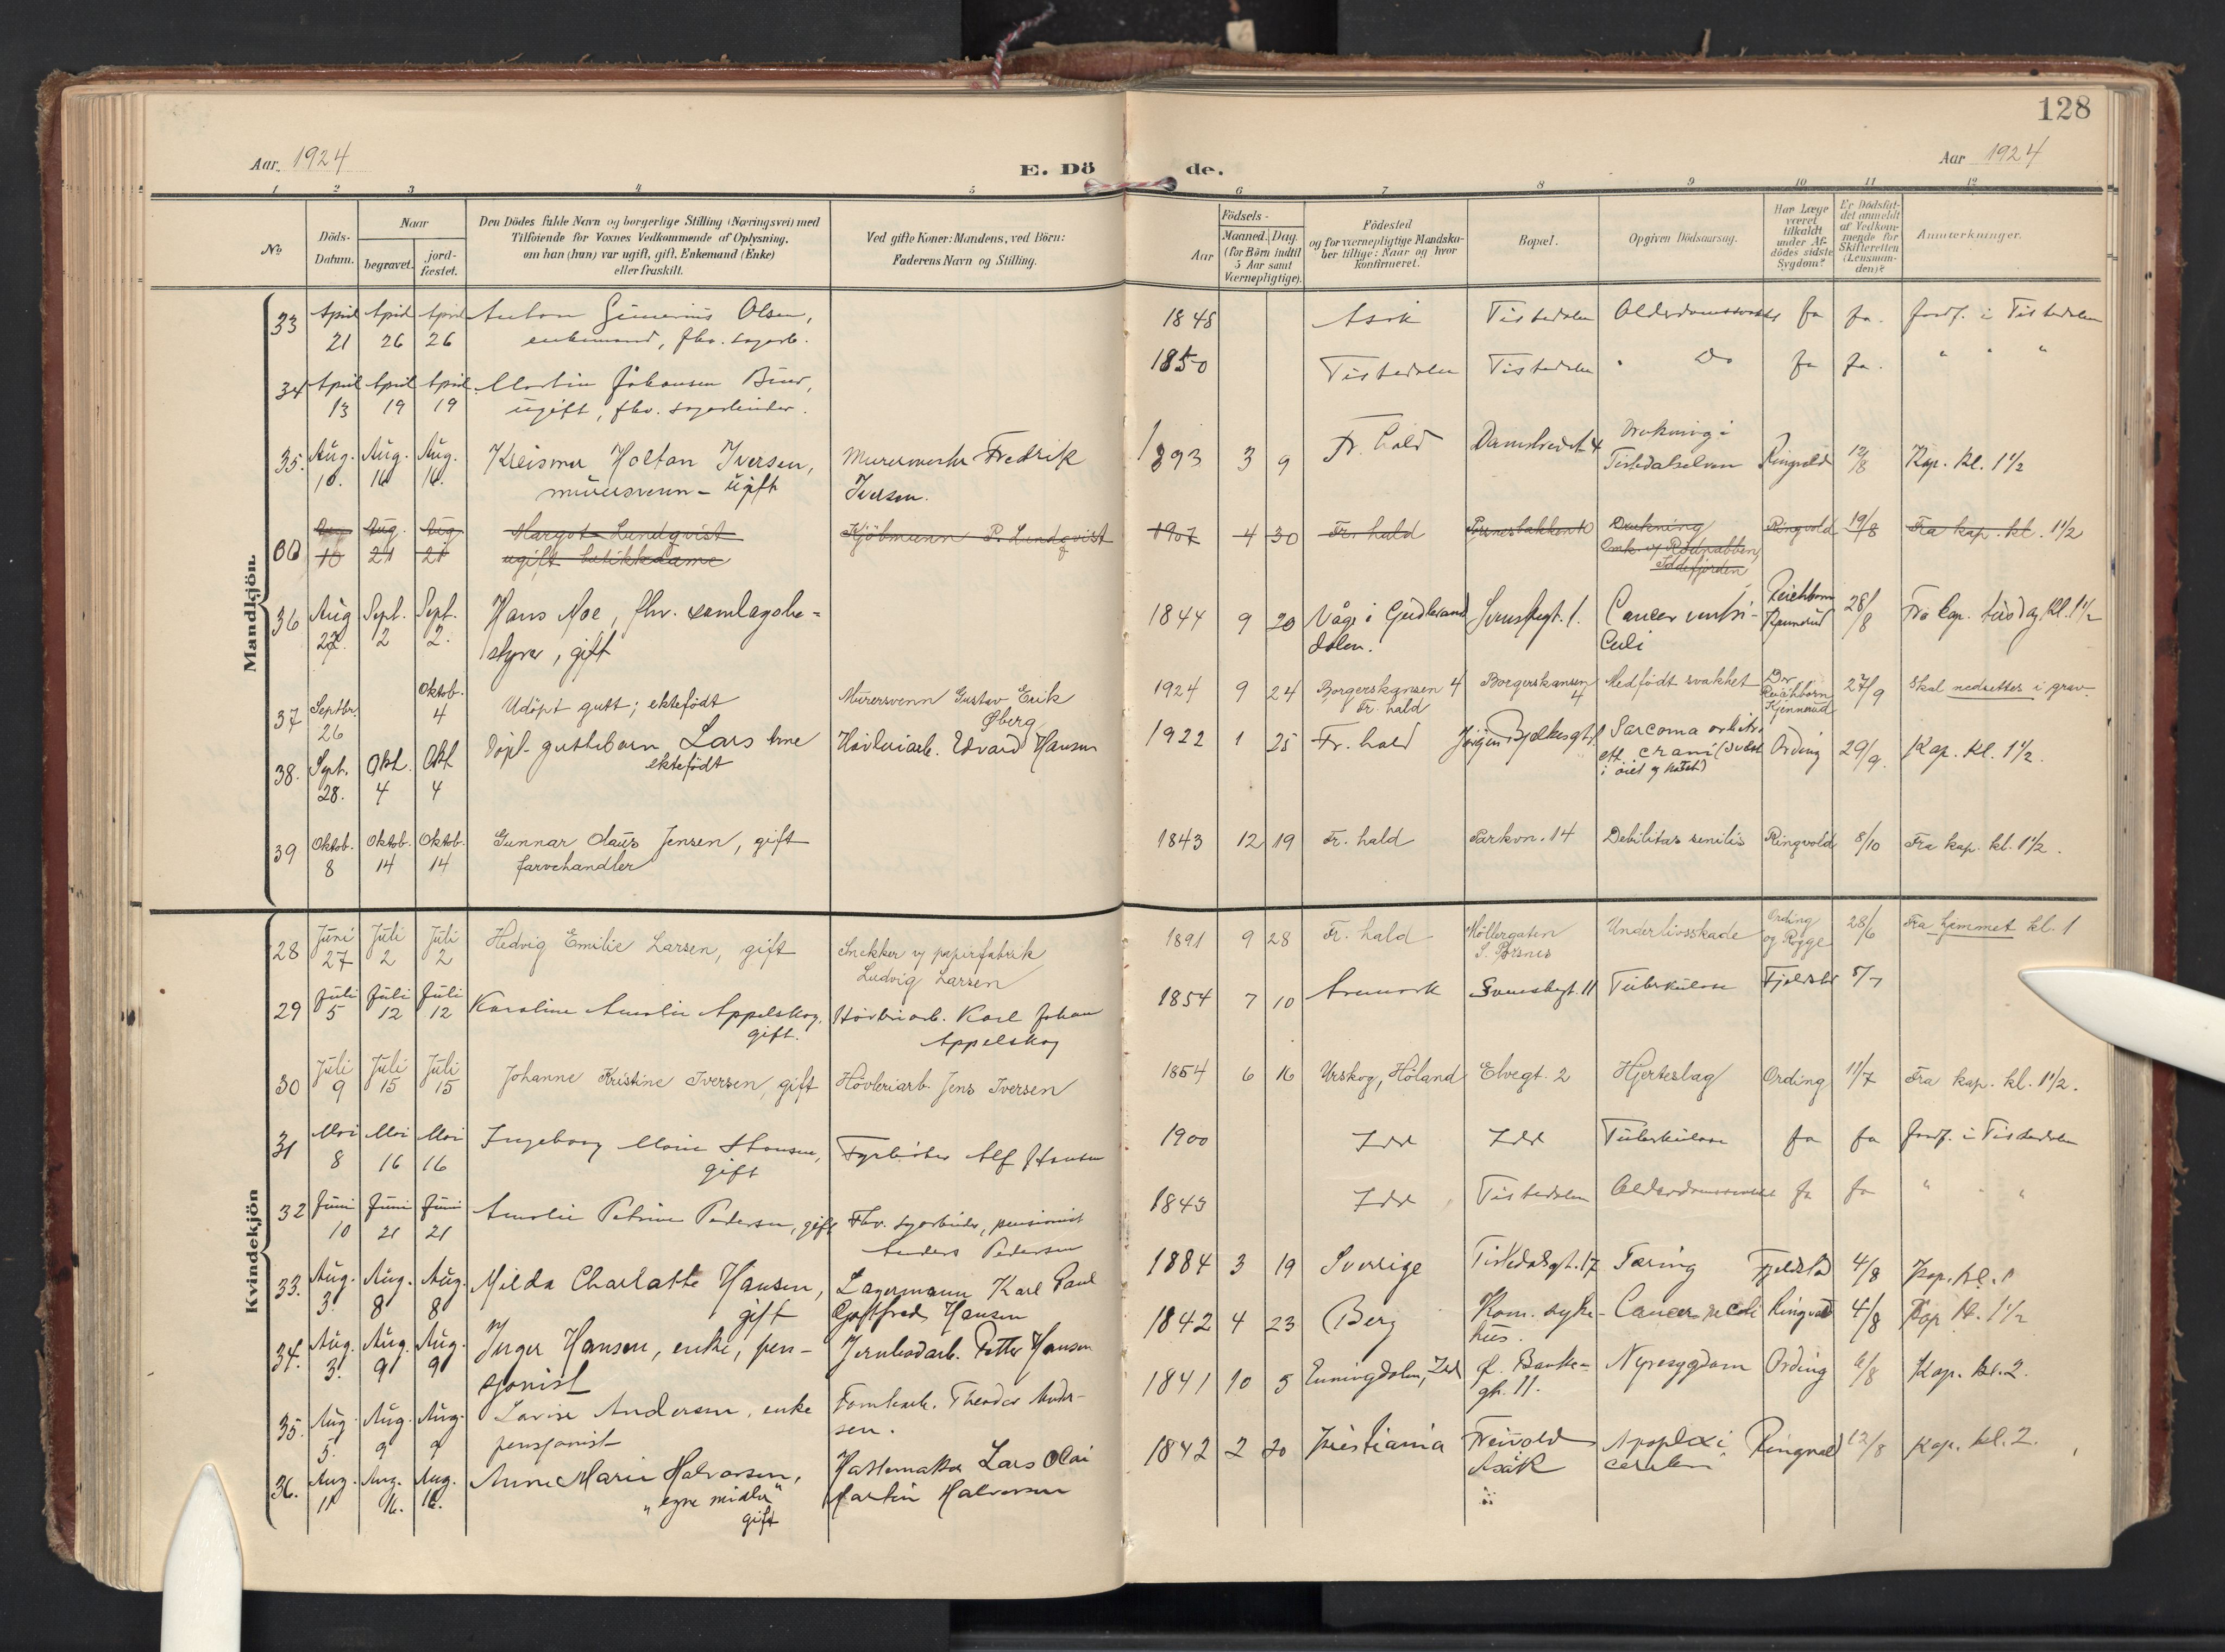 128
Aar. 1924
E. Dö de.
Aar 1924
1 2 3 4 5 6 7 8 9 10 11 12
No
Döds-
Datum.
Naar
begravet.
jord-
fæstet.
Den Dödes fulde Navn og borgerlige Stilling (Næringsvei) med
Tilföiende for Voxnes Vedkommende af Oplysning,
om han (hun) var ugift, gift, Enkemand (Enke)
eller fraskilt.
Ved gifte Koner: Mandens, ved Börn:
Faderens Navn og Stilling.
Födsels-
Aar
Maaned. Dag.
(for Börn indtil
5 Aar samt
Værnepligtige).
Födested
og for værnepligtige Mandska-
ber tillige: Naar og hvor
konfirmeret.
Bopæl.
Opgiven Dödsaarsag.
Har Læge
været
tilkaldt
under Af-
dödes sidste
Sygdom?
Er Dödsfal-
det anmeldt
af Vedkom-
mende for
Skifteretten
(Lensman-
den)?
Anmærkninger.
Mandkjön.
33 April 21 April 26 April 26 Anton Olsen, 1848 Asak Tistedalen Alderdomssvakhet ja ja. Jordf. i Tistedalen
enkemand, fhv. sagarb.
34 April 13 April 19 April 19 Martin Johansen 1850 Tistedalen Tistedalen " Do ja ja. " " "
ugift, fhv. sagarbeider.
35. Aug. 10. Aug. 16 Aug. 16. Holtan Iversen, Murermester Fredrik 1893 3 9 Fr. hald Damstredet 4 Drukning i
murersvenn - ugift Iversen. Tistedalselven Ringvold 12/8 Kap. kl. 1 1/2
Aug 10 Aug. 21 Aug 21 Margot Lundqvist Kjöbmann P. Lindqvist 1907 4 30 Fr. hald Drukning Ringvold 19/8 Fra kap. kl. 1 1/2
ugift butikkdame Rödnabben,
Iddefjorden
36 Aug 27. Sept. 2 Sept. 2. Hans Moe, fhv. samlagsbe- 1844 9 20 Våge i Gudbrand Cancer ventri- 28/8 Fra kap. tirsdag kl. 1 1/2
styrer, gift dalen. culi
37 Septbr. 26 Oktob. 4 Udöpt gutt; ektefödt Murersvenn Gustav Erik 1924 9 24 Borgerskansen 4 Borgerskansen 4 Medfödt svakhet Dr. 27/9 Skal nedsettes i grav.
Öberg Fr. hald
38. Sept. 28. Okt. 4 Okt 4 Döpt guttebarn Lars Arne Hövleriarb. Edvard Hansen 1922 1 25 Fr. hald Jörgen Bjelkesgt. 1 Sarcoma orbitae Ording 29/9. Kap. kl. 1 1/2.
ektefödt
39 Oktob. 8 Oktob. 14 Oktob. 14 Gunnar Olaus Jensen, gift 1843 12 19 Fr. hald Parkvn. 14 Debilitas senilis Ringvold 8/10 Fra kap. kl. 1 1/2.
farvehandler
Kvindekjön
28 Juni 27 Juli 2 Juli 2 Hedvig Emilie Larsen, gift Snekker v/ papirfabrik 1891 9 28 Fr. hald Möllergaten Underlivsskade Ording og Rygge 28/6 Fra hjemmet kl. 1
Ludvig Larsen
29 Juli 5 Juli 12 Juli 12 Karoline Amalie Appelskog, Hövleriarb. Karl Johan 1854 7 10 Aremark Tuberkulose Fjeldstad 5/7
gift. Appelskog
30 Juli 9 Juli 15 Juli 15 Johanne Kristine Iversen, gift Hövleriarb. Jens Iversen 1854 6 16 Urskog, Höland Elvegt. 2 Hjerteslag Ording 11/7 Fra kap. kl. 1 1/2.
31 Mai 8 Mai 16 Mai 16 Ingeborg Marie Hansen, Fyrböter Alf Hansen 1900 Idd Idd Tuberkulose ja ja Jordf. i Tistedalen
gift
32 Juni 10 Juni 21 Juni 21 Amalie Petrine Pedersen, gift Fhv. sagarbeider, pensionist 1843 Idd Tistedalen Alderdomssvakhet ja ja " " "
Anders Pedersen
33. Aug. 3. Aug. 8 Aug. 8 Milda Charlotte Hansen, Lagermann Karl Paul 1884 3 19 Sverige Tistedalsgt. 17 Tæring Fjeldstad 4/8 Kap. kl. 1
gift Gottfred Hansen
34. Aug. 3. Aug. 9 Aug. 9 Inger Hansen, enke, pen- Petter Hansen 1842 4 23 Berg Kom. syke- Cancer coli Ringvold 4/8 Kap kl. 1 1/2
sjonist hus.
35. Aug. 5. Aug. 9 Aug. 9 Lovise Andersen, enke Tomtearb. Theodor Ander- 1841 10 5 Enningdalen, Idd Banke- Nyresygdom Ording 6/8 Kap. kl. 2.
pensjonist sen. gt. 11.
36. Aug. 11 Aug. 16. Aug. 16. Anne Marie Halvorsen, Hattemaker Lars Olai 1842 2 20 Kristiania Asak Apoplexi Ringvold 12/8 Kap. kl. 2.
"egne midler" Martin Halvorsen cerebri
gift